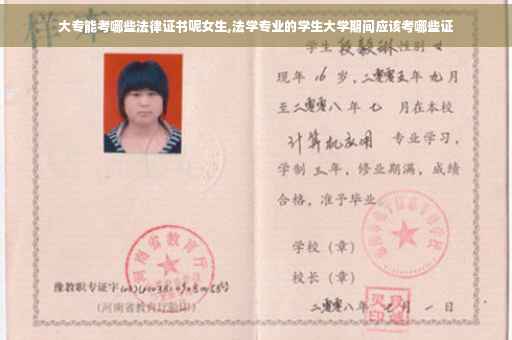 大专能考哪些法律证书呢女生,法学专业的学生大学期间应该考哪些证
样本
学生段毅琳性别女
现年16岁,二零零五年九月
至二零零八年七 月在本校
计算机应用 专业学习,
学制三年,修业期满,成绩
合格,准予毕业
学校(章)
校长(章)
二零零八年七月一日
豫教职专证字
(河南省教育厅监印)
河南省教育厅